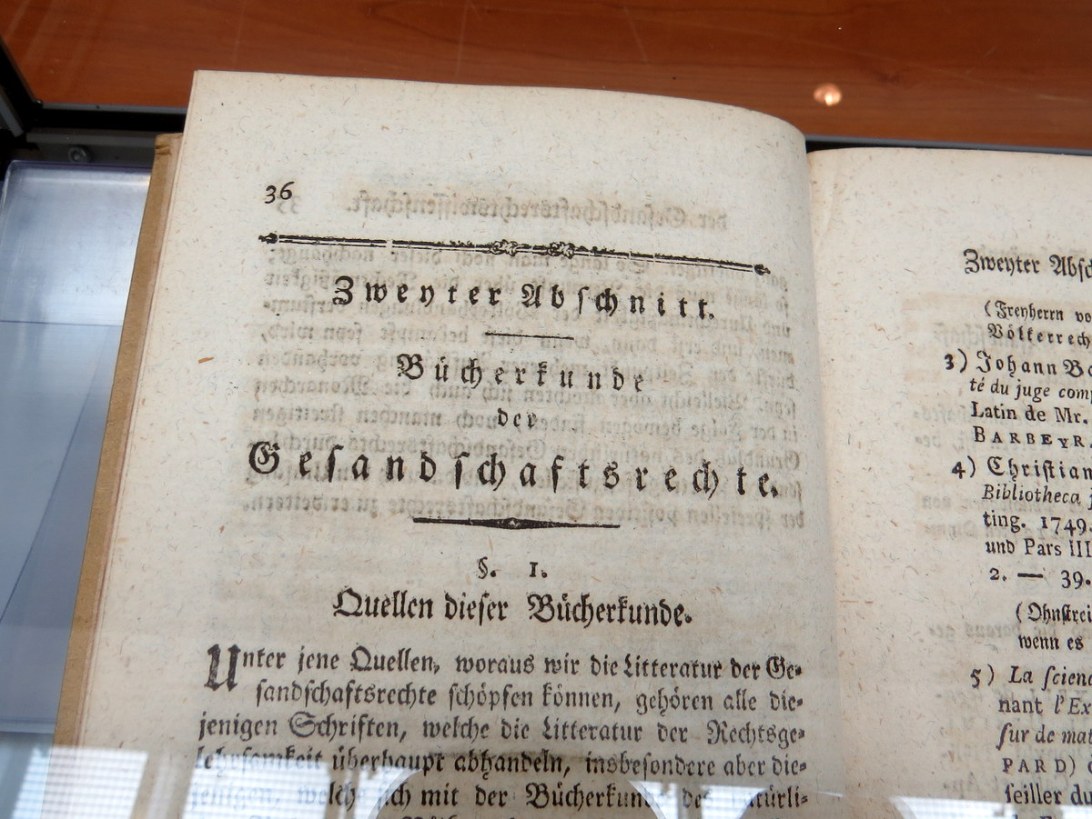 36
Zweyter Abschnitt.
Bücherkunde
der
Gesandschaftsrechte.
§. 1.
Quellen dieser Bücherkunde.
Unter jene Quellen, woraus wir die Litteratur der Ge-
sandschaftsrechte schöpfen können, gehören alle die-
jenigen Schriften, welche die Litteratur der Rechtsge-
lehrsamkeit überhaupt abhandeln, insbesondere aber die-
jenigen, welche sich mit der Bücherkunde der natürli-
Zweyter Absc
(Freyherrn vo
Völkerrech
3) Johann Ba
té du juge comp
Latin de Mr.
BARBEYR.
4) Christian
Bibliotheca j
ting. 1749.
und Pars III
2. — 39.
(Ohnstrei
wenn es
5) La scienc
nant l'Ex
sur de mat
PARD)
seiller du